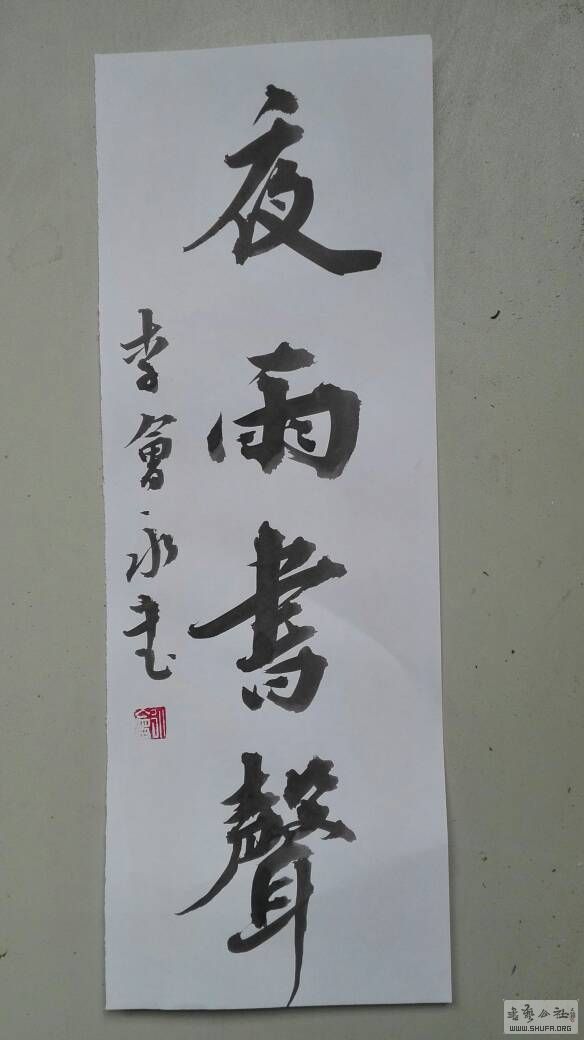 夜雨書聲
李會永書
書藝公社
WWW.SHUFA.ORG